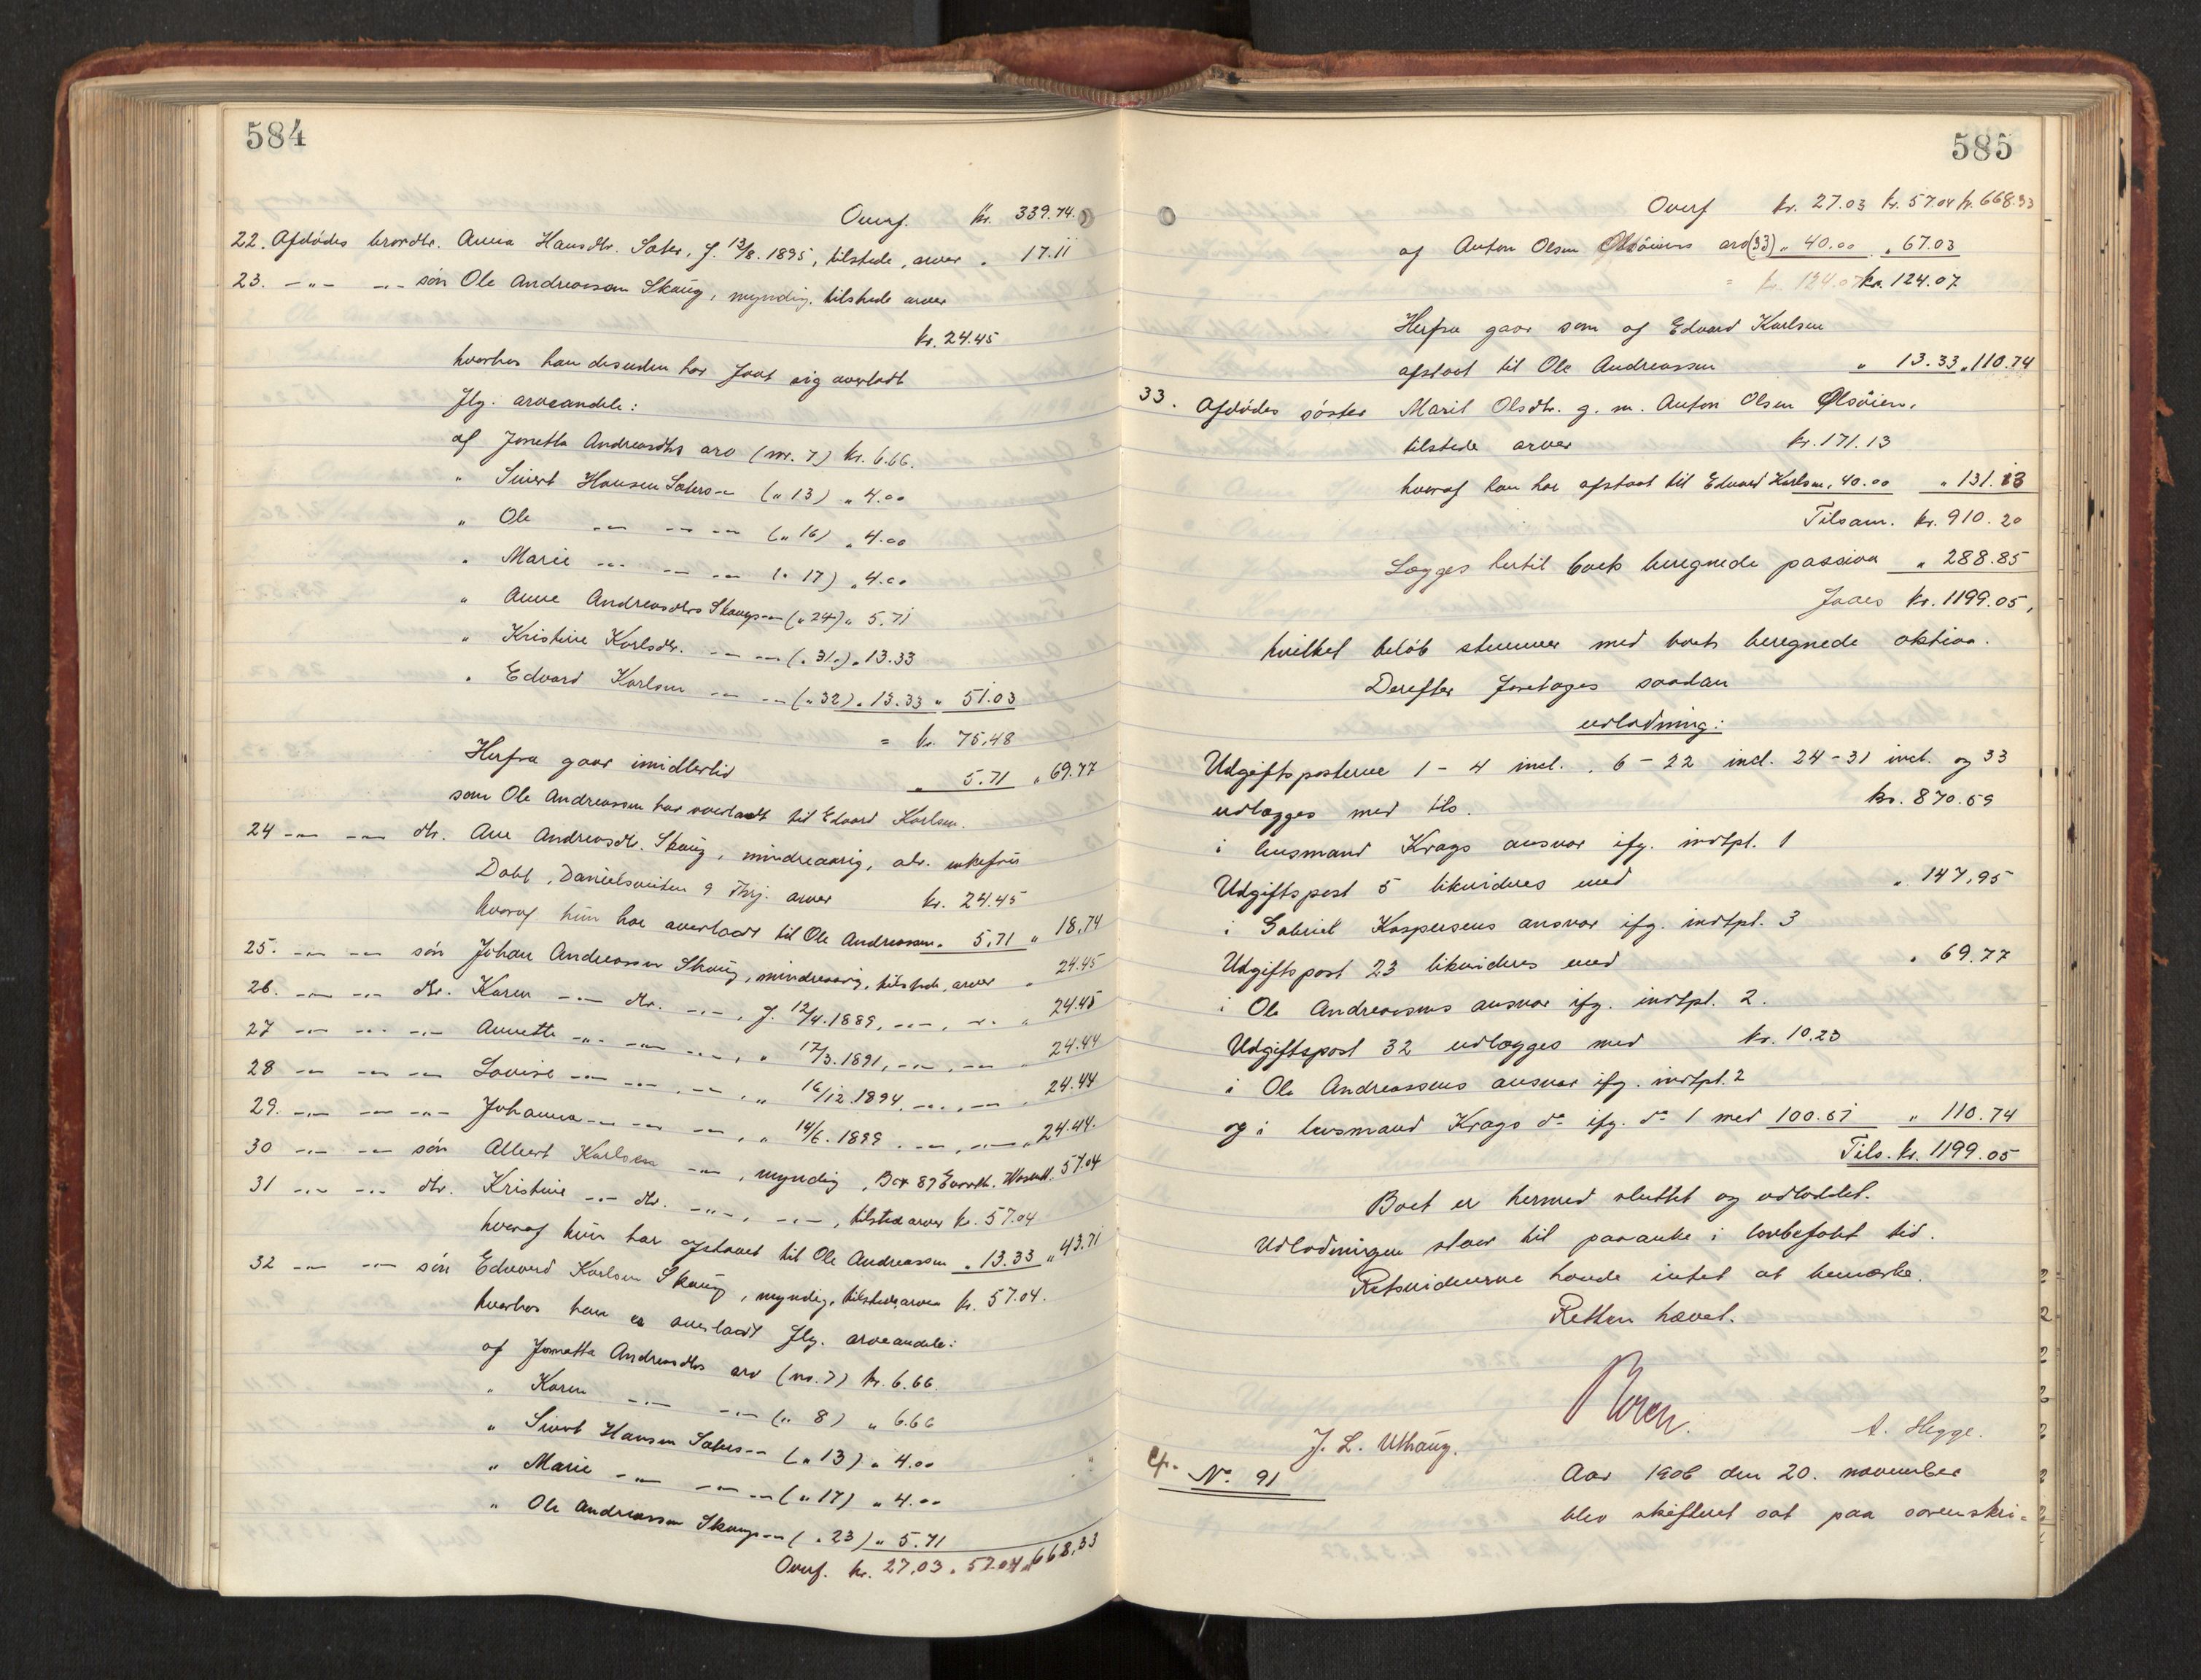 584
Overf. kr. 339.74.
22. Afdødes brordtr. Anna Hansdtr. Sæter, f. 13/8. 1895, tilstede, arver „ 17.11
23. -„- -„- søn Ole Andreassen Skaug, myndig, tilstede arver
kr. 24.45
hvorhos han desuden har faat sig overladt
flg. arveandele:
af Jonetta Andreasdtrs arv (nr. 7) kr. 6.66.
„ Sivert Hansen Sæters -„- („ 13) „ 4.00
„ Ole -„- -„- -„- („ 16) „ 4.00
„ Marie -„- -„- -„- („ 17) „ 4.00
„ Anne Andreasdtrs Skaugs -„- („ 24) „ 5.71
„ Kristine Karlsdtr. -„- -„- („ 31.) „ 13.33
„ Edvard Karlsen -„- -„- („ 32) „ 13.33 „ 51.03
= kr. 75,48
Herfra gaar imidlertid „ 5.71 „ 69.77
som Ole Andreassen har overladt til Edvard Karlsen.
24 -„- -„- dtr. Ane Andreasdtr. Skaug, mindreaarig, adr. enkefru
Dahl, Danielsveiten 9 Thrj. arver kr. 24.45
hvoraf hun har overladt til Ole Andreassen „ 5,71 „ 18,74
25. -„- -„- søn Johan Andreassen Skaug, mindreaarig, tilstede, arver „ 24.45
26. -„- -„- dtr. Karen -„- dtr. -„-, f. 12/4. 1889, -„-, -„- „ 24.45
27 -„- -„- -„- Annette -„- -„- -„-, „ 17/3. 1891, -„-, -„- „ 24.44
28 -„- -„- -„- Lovise -„- -„-, -„-, „ 16/12. 1894, -„-, -„- „ 24.44
29. -„- -„- -„- Johanna -„- -„- -„-, „ 14/6. 1899. -„-, -„- „ 24.44.
30 -„- -„- søn Albert Karlsen -„-, myndig, Box 87 57.04
31 -„- -„- dtr. Kristine -„- dtr. -„-, -„-, tilstede arver kr. 57.04
hvoraf hun har afstaaet til Ole Andreassen „ 13.33 „ 43.71
32 -„- -„- søn Edvard Karlsen Skaug, myndig, tilstede, arver kr. 57.04.
hvorhos han er overladt flg. arveandele:
af Jonetta Andreasdtrs arv (nr. 7) kr. 6.66.
„ Karen -„- -„- („ 8) „ 6.66
„ Sivert Hansen Sæters -„- („ 13) „ 4.00
„ Marie -„- -„- -„- („ 17) „ 4.00
„ Ole Andreassen Skaugs -„- („ 23) „ 5.71
Overf. kr. 27,03 „ 57.04 „ 668,33
585
Overf kr. 27.03 kr. 57.04 kr. 668.33
af Anton Olsen Ølsøiens arv (33) „ 40.00 „ 67.03
= kr. 124.07 kr. 124.07
Herfra gaar som af Edvard Karlsen
afstaat til Ole Andreassen „ 13.33 „ 110.74
33. Afdødes søster Marit Olsdtr. g. m. Anton Olsen Ølsøien,
tilstede arver kr. 171.13
hvoraf han har afstaat til Edvard Karlsen „ 40.00 „ 131.13
Tilsam. kr. 910.20
Lægges hertil boets beregnede passiva „ 288.85
faaes kr. 1199.05,
hvilket beløb stemmer med boets beregnede aktiva.
Derefter foretages saadan
udlodning:
Udgiftsposterne 1 - 4 incl. , 6 - 22 incl. 24 - 31 incl. og 33
udlægges med tils. kr. 870.59
i lensmand Krags ansvar ifg. indtpt. 1
Udgiftspost 5 likvideres med „ 147,95
i Gabriel Kaspersens ansvar ifg. indtpt. 3
Udgiftspost 23 likvideres med „ 69.77
i Ole Andreassens ansvar ifg. indtpt. 2.
Udgiftspost 32 udlægges med kr. 10.23
i Ole Andreassens ansvar ifg. indtpt. 2
og i lensmand Krags do ifg. do 1 med 100.51 „ 110.74
Tils. kr. 1199.05
Boet er hermed sluttet og udloddet.
Udlodningen staar til paaanke i lovbefalet tid.
Retsvidnerne havde intet at bemærke.
Retten hævet.
J. L. Uthaug.
A. Hegge.
No. 91
Aar 1906 den 20. november
blev skifteret sat paa sorenskri=